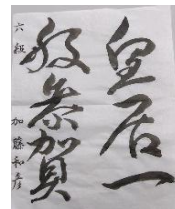 皇居一
般参賀
六段 加藤和彦